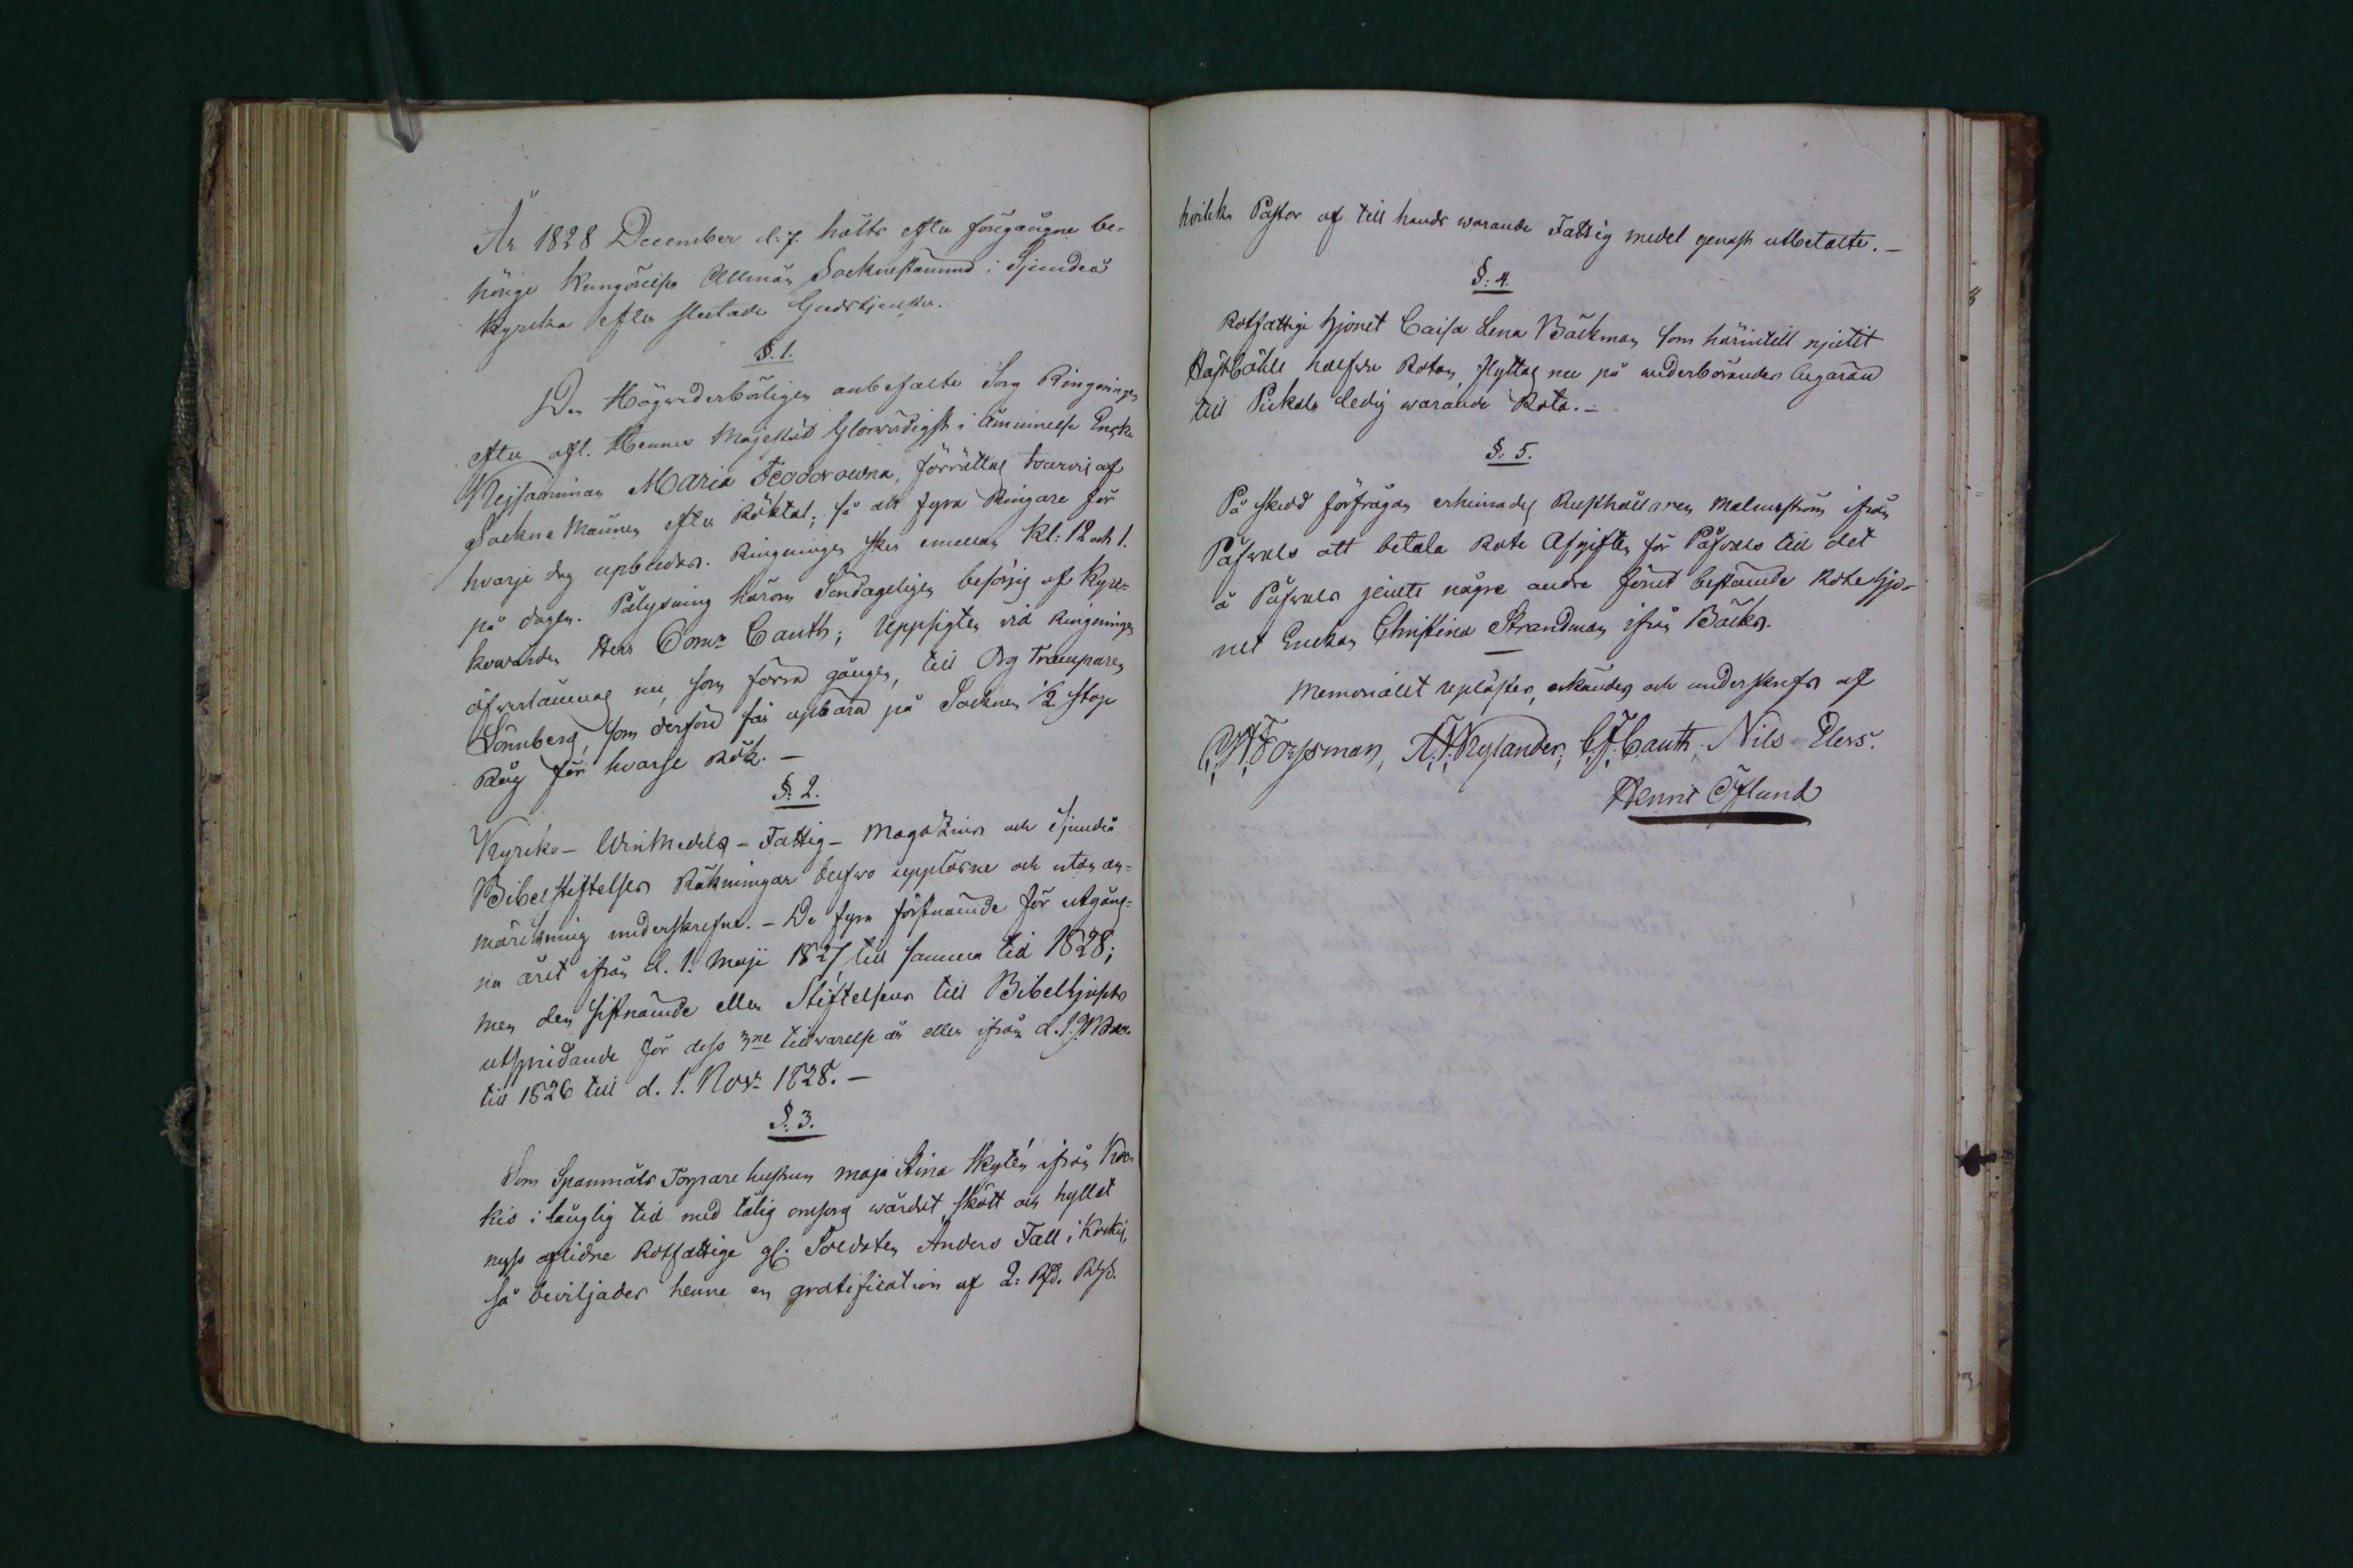 År 1828 December d. 7. hölts efter föregången be-
hörige Kungörelse Allmän Socknestämma i Sjundeå
Kyrcka efter slutade Gudstjensten.
§. 1.
Den Högvederbörligen anbefalte Sorg Ringningen
efter afl. Hennes Majestät Glorvördigst i åminnelse Enke
Kejsarinnan Maria Feodorowna, förrättas turvis af
Sockne Männen efter Röktal; så att fyra Ringare för
hvarje dag upbådas. Ringningen sker emellan Kl: 12 och 1.
på dagen. Pålysning härom Söndageligen besörjes af Kyrc-
kovärden Herr Coms Cauth; Uppsigten vid Ringningen
öfverlämnas nu, som förra gången, till Org Tramparen
Lönnberg, som derföre får upbära på Socknen 1/2 stop
Råg för hvarje Rök. —
§. 2.
Kyrcko- Winmedels - Fattig - Magazins och Sjundeå
Bibelstiftelsens Räkningar blefvo upplästne och utan an-
märckning underskrefne. - De fyra förstnämnde för utgång-
na året ifrån d. 1. Maji 1827 till samma tid 1828;
men den sistnämnde eller Stiftelsens till Bibelljusets
utspridande för dess 3ne tillvarelse år eller ifrån d. 1.
till 1826 till d. 1. Novr 1828. —
§. 3.
Som Spannmåls Torpare hustrun Maja Stina Skytén ifrån Koc-
kis i långlig tid med tålig omsorg vårdat, skött och hyllat
nyss aflidne Rotfattige gl. Soldaten Anders Fall i Kockis,
så beviljades henne en gratification af 2: Rd. Rgs.
hvilka Pastor af till hands warande Fattig medel genast utbetalte. —
§. 4.
Rotfattige hjonet Caisa Lena Bäckman som härintill njutit
Hästböhle halfva Rotan, flyttas nu på vederbörandes begäran
till Pickala ledig warande Rota. —
§. 5.
På skedd förfrågan erhinrades Rusthållaren Malmström ifrån
Påfvals att betala Rote Afgiften för Påfvals till det
å Påfvals jemte några andra förut bestämde Rotehjo-
net Enckan Christina Strandman ifrån Bäcks.
—
Memorialet upläster, erkändes och underskrefs af
C.W. Forssman, A.F. Nylander, C.J. Cauth, Nils Elers.
Henric Öflund